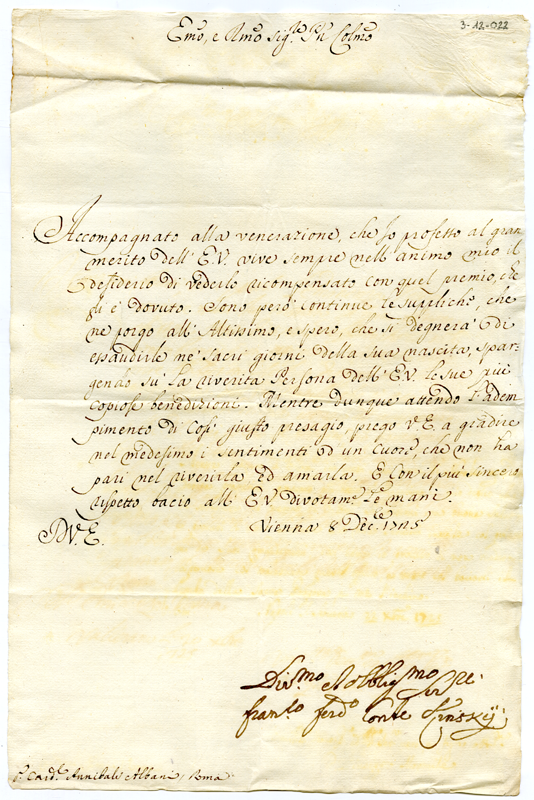 3-12-022
Emo, e Rmo Sigre Pn Colmo
Accompagnato alla venerazione, che Io professo al gran
merito dell' E.V. vive sempre nell' animo mio il
desiderio di vederlo ricompensato con quel premio, che
gli è dovuto. Sono però continue le suppliche, che
ne porgo all' Altissimo, e spero, che si degnerà di
essaudirle ne' Sacri giorni della sua nascita, spar-
gendo sù la riverita Persona dell' E.V. le sue più
copiose benedizioni. Mentre dunque attendo l'adem
pimento di Così giusto presagio, prego V.E. a gradire
nel medesimo i sentimenti d' un Cuore, che non ha
pari nel riverirla ed amarla. E Con il più sincero
rispetto bacio all' E.V. divotame. Le mani.
Vienna 8 Dece. 1715
D.V.E.
Divmo Obbligmo
Franco ferdo Conte Kinskÿ.
Card. Annibale Albani Roma